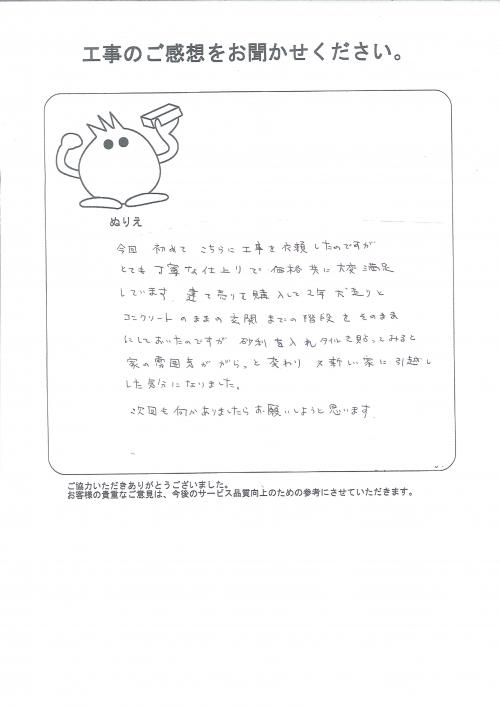 工事のご感想をお聞かせください。
ぬりえ
今回 初めて こちらに 工事を 依頼したのですが
とても 丁寧な仕上りで 価格共に 大変 満足
しています。建て売りで 購入して 2年 犬走りと
コンクリートのままの 玄関までの 階段を そのまま
にしておいたのですが 砂利を入れ タイルを貼ってみると
家の雰囲気が がらっと 変わり 又新しい家に 引越し
した気分になりました。
次回も何かありましたらお願いしようと思います
ご協力いただきありがとうございました。
お客様の貴重なご意見は、今後のサービス品質向上のための参考にさせていただきます。